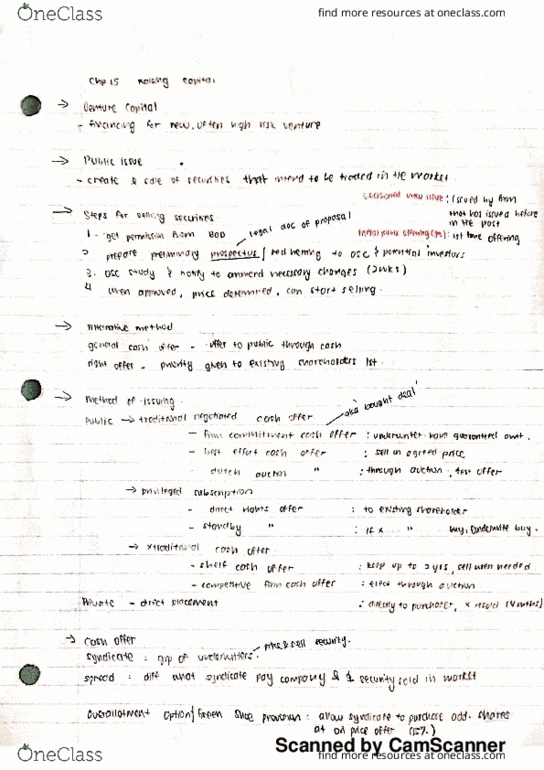 OneClass
find more resources at oneclass.com
Chp 15 Raising Capital
→ Venture Capital
- financing for new, often high risk venture
→ Public issue
- create & sale of securities that intend to be traded in the market.
seasoned new issue : issued by firm
that has issued before
in the past
→ Steps for selling securities
legal doc of proposal
1. get permission from BOD
initial public offering (IPO) : 1st time offering
2 prepare preliminary prospectus / red herring to OSC & potential investors
3. OSC study & notify to ammend necessary changes (2wks)
4 when approved, price determined, can start selling.
→ Alternative method
general cash offer - offer to public through cash
right offer - priority given to existing shareholders 1st.
→ Method of issuing.
aka 'bought deal'
Public → traditional negotiated cash offer
- firm commitment cash offer : underwriter have guaranteed amt.
- best effort cash offer : sell on agreed price.
- dutch auction " : through auction, offer
→ privileged subscription
- direct rights offer : to existing shareholder
- standby " : if x " buy, underwrite buy.
→ xtraditional cash offer
- shelf cash offer : keep up to 2 yrs, sell when needed
- competitive firm cash offer : elect through auction
Private - direct placement : directly to purchaser, x resold (4 months)
→ Cash offer
syndicate : grp of underwriters. mks & sell security.
spread : diff what syndicate pay company & $ security sold in market
Overallotment Option / Green Shoe provision : allow syndicate to purchase add. shares
at ori price offer (15%)
Scanned by CamScanner
OneClass
find more resources at oneclass.com